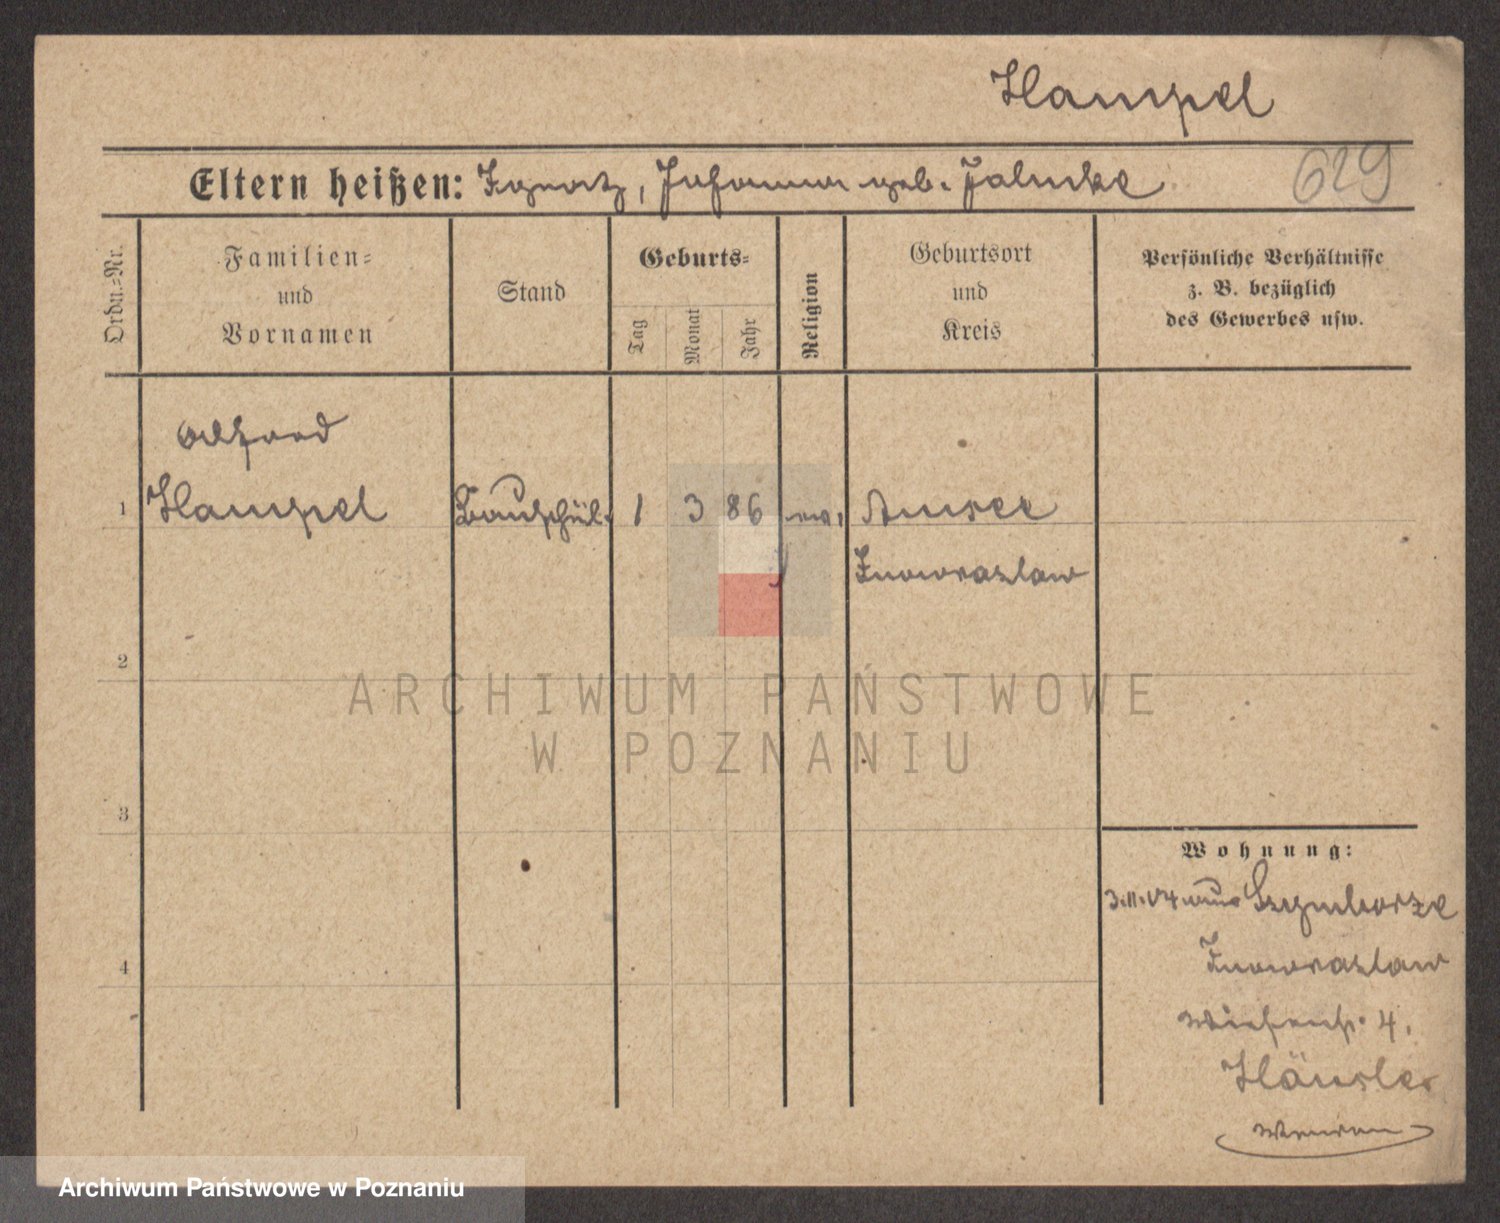 Hampel
629
Eltern heißen: Ignatz, Johanna geb. Jahnke
Ordn.-Nr.
Familien-
und
Vornamen
Stand
Geburts-
Tag
Monat
Jahr
Religion
Geburtsort
und
Kreis
Persönliche Verhältnisse
z. B. bezüglich
des Gewerbes usw.
Alfred
1 Hampel Bauschül. 1 3 86 ev. Amsee
Inowrazlaw
2
ARCHIWUM PAŃSTWOWE
W POZNANIU
3
Wohnung:
3.11.04 aus Szymborze
Inowrazlaw
Wiesenstr. 4.
Häusler
4
Archiwum Państwowe w Poznaniu